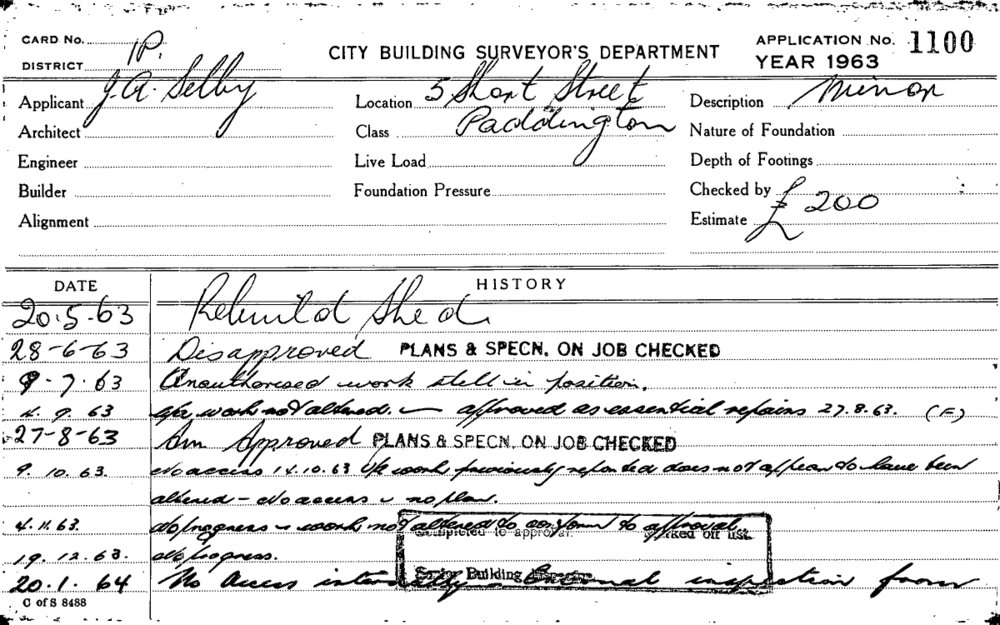 CARD No. 1P. CITY BUILDING SURVEYOR'S DEPARTMENT APPLICATION No. 1100
DISTRICT YEAR 1963
Applicant J.A. Selby Location 5 Short Street Description Minor
Architect Class Paddington Nature of Foundation
Engineer Live Load Depth of Footings
Builder Foundation Pressure Checked by
Alignment Estimate £ 200
DATE HISTORY
20.5.63 Rebuild Shed
28-6-63 Disapproved PLANS & SPECN. ON JOB CHECKED
9.7.63 Unauthorised work still in position.
4.9.63 work not altered. approved as essential repairs 27.8.63. (F)
27-8-63 Am Approved PLANS & SPECN. ON JOB CHECKED
9.10.63. No access 14.10.63 work previously reported does not appear to have been
altered - No access no plan.
4.11.63. No progress work not altered to conform to approval.
Completed to approval. off list.
19.12.63. No progress.
Building Inspector
20.1.64 No Access internally External inspection from
C of S 8488